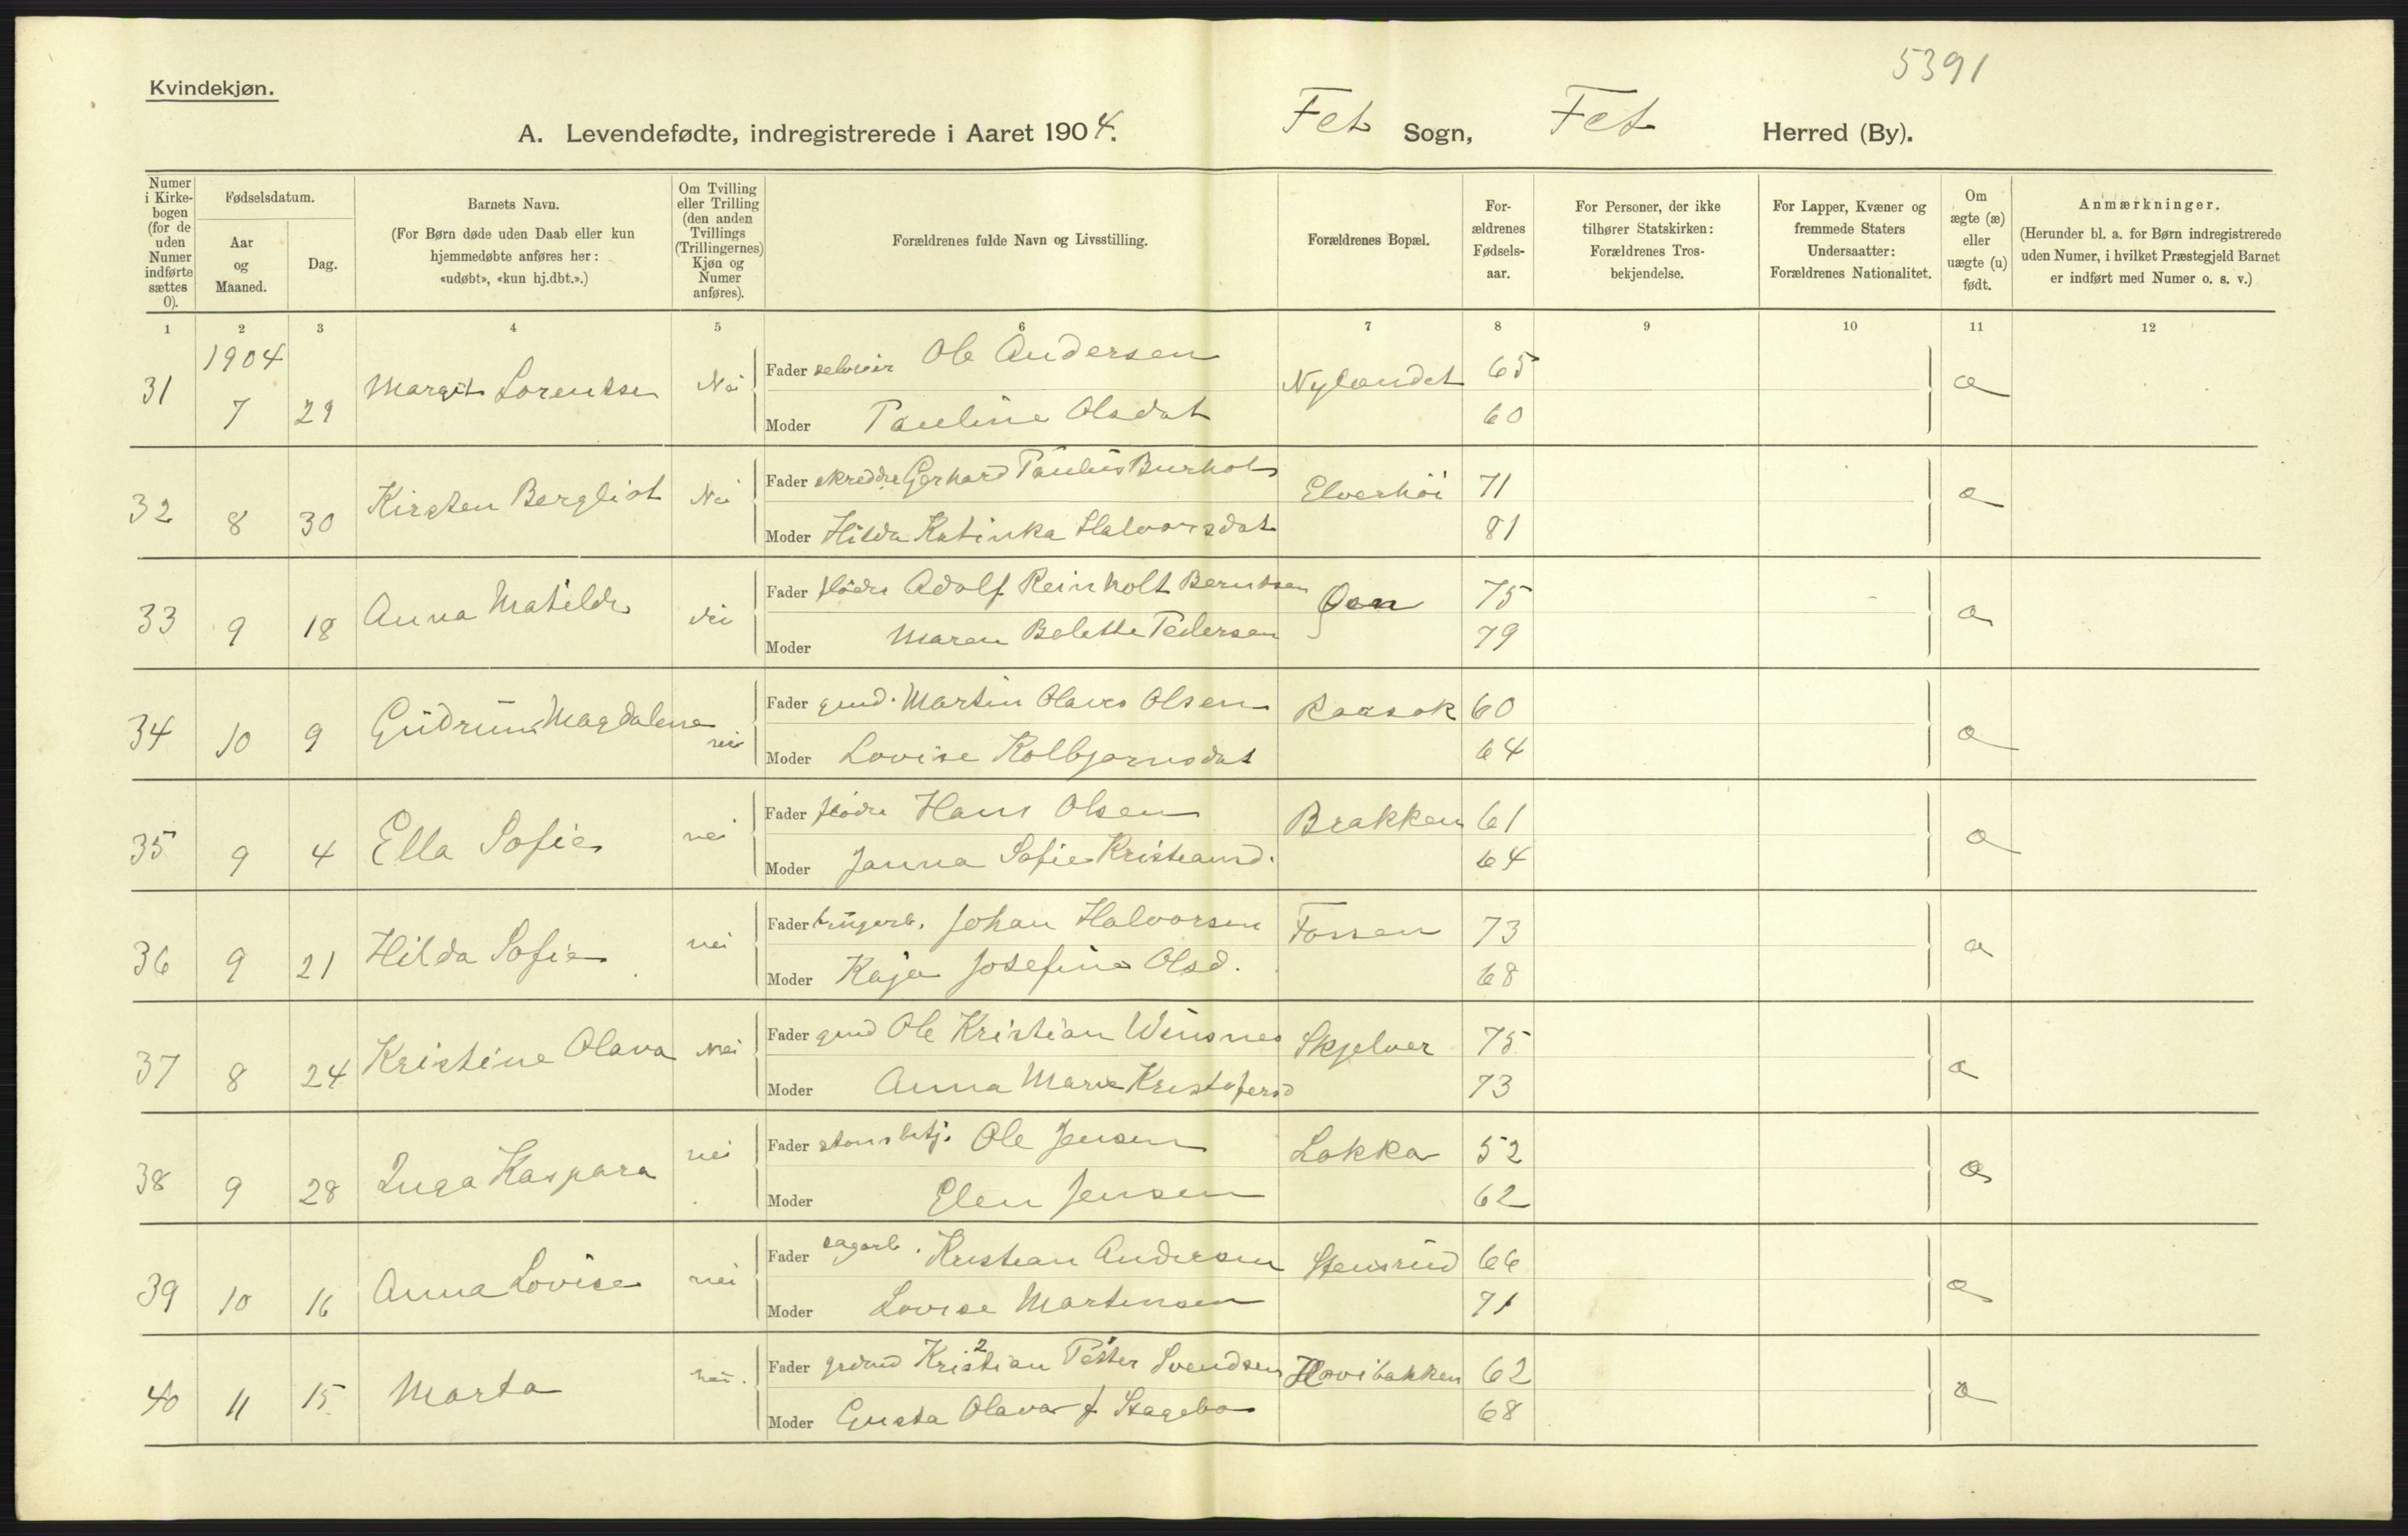 5391
Kvindekjøn.
A. Levendefødte, indregistrerede i Aaret 1904. Fet Sogn, Fet Herred (By).
Numer i Kirkebogen (for de uden Numer indførte sættes 0).
Fødselsdatum.
Aar og Maaned.
Dag.
Barnets Navn.
(For Børn døde uden Daab eller kun hjemmedøbte anføres her: «udøbt», «kun hj.dbt.».)
Om Tvilling eller Trilling (den anden Tvillings (Trillingernes) Kjøn og Numer anføres).
Forældrenes fulde Navn og Livsstilling.
Forældrenes Bopæl.
Forældrenes Fødselsaar.
For Personer, der ikke tilhører Statskirken: Forældrenes Trosbekjendelse.
For Lapper, Kvæner og fremmede Staters Undersaatter: Forældrenes Nationalitet.
Om ægte (æ) eller uægte (u) født.
Anmærkninger.
(Herunder bl. a. for Børn indregistrerede uden Numer, i hvilket Præstegjeld Barnet er indført med Numer o. s. v.)
1 2 3 4 5 6 7 8 9 10 11 12
1904
31 7 29 Margit Lorentse Nei Fader selveier Ole Andersen Nylandet 65 æ
Moder Pauline Olsdat 60
32 8 30 Kirsten Bergliot Nei Fader skrædder Gerhard Paulus Burhol Elverhöi 71 æ
Moder Hilda Katinka Halvorsdat 81
33 9 18 Anna Matilde Nei Fader fløder Adolf Reinholt Berntsen 75 æ
Moder Maren Belette Pedersen 79
34 10 9 Gudrun Magdalene nei Fader grmd. Martin Olaves Olsen Raasok 60 æ
Moder Lovise Kolbjørnsdat 64
35 9 4 Ella Sofie nei Fader fløder Hans Olsen Brakken 61 æ
Moder Janna Sofie Kristiansd. 64
36 9 21 Hilda Sofie nei Fader brugsarb. Johan Halvorsen Fossen 73 æ
Moder Kaja Josefine Olsd. 68
37 8 24 Kristine Olava nei Fader grmd Ole Kristian Winsnes Skjelver 75 æ
Moder Anna Marie Kristofersd 73
38 9 28 Inga Kaspara nei Fader Ole Jensen Lakka 52 æ
Moder Elen Jensen 62
39 10 16 Anna Lovise nei Fader sagarb. Kristian Andersen Stensrud 66 æ
Moder Lovise Martinsen 71
40 11 15 Marta nei. Fader grdmd Kristian 2 Petter Svendsen Hovibakken 62 æ
Moder Gusta Olava f. Stagebo 68